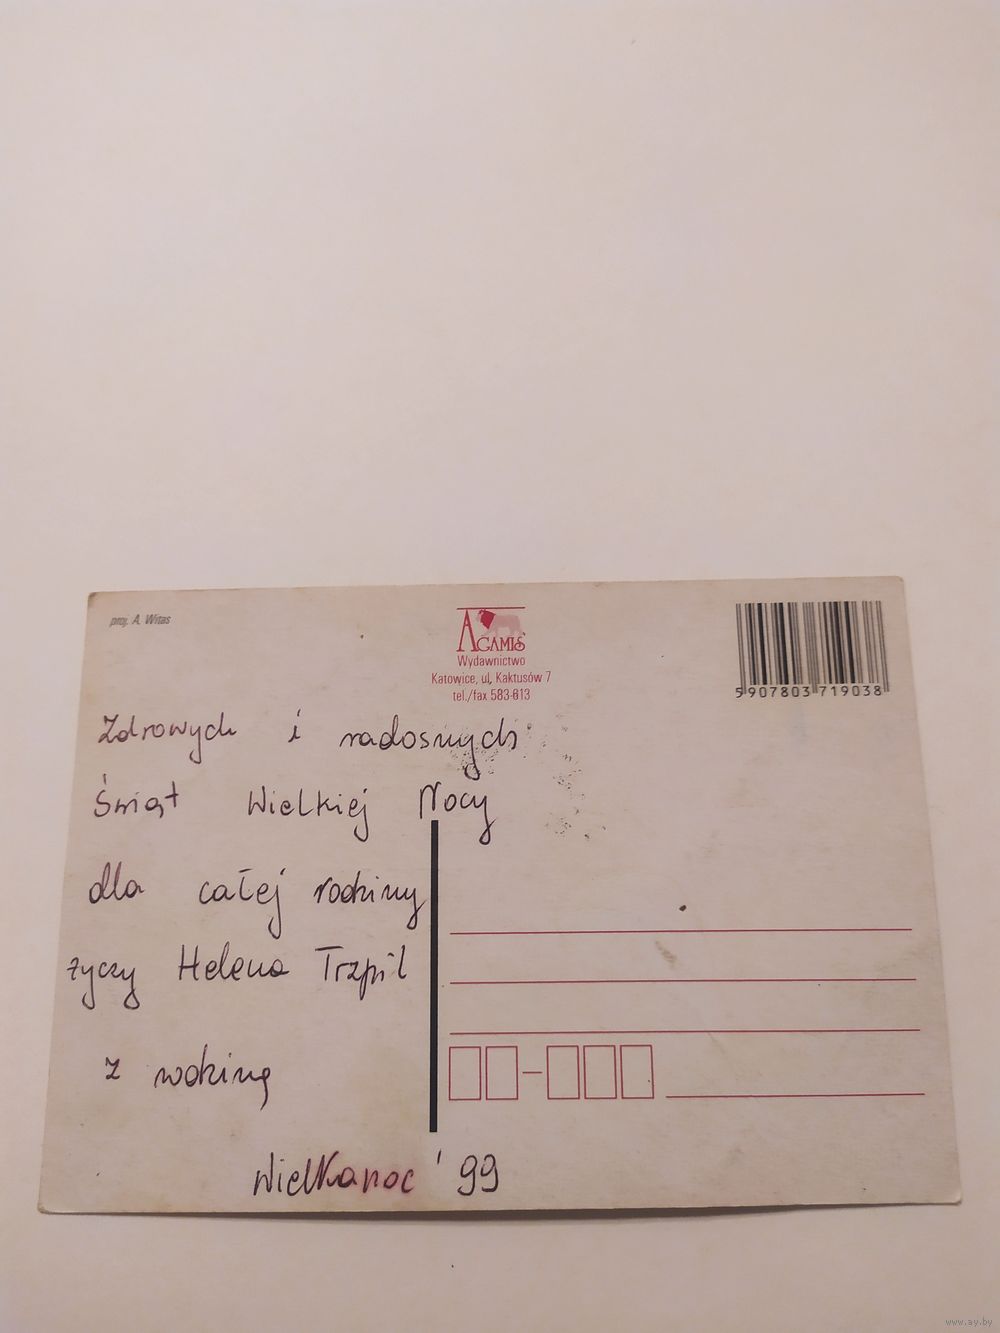 proj. A. Witas
AGAMIS
Wydawnictwo
Katowice, ul, Kaktusów 7
tel./fax 583-613
5 907803 719038
Zdrowych i radosnych
Świąt Wielkiej Nocy
dla całej rodziny
życzy Helena Trzpil
z rodziną
Wielkanoc '99
www.ay.by